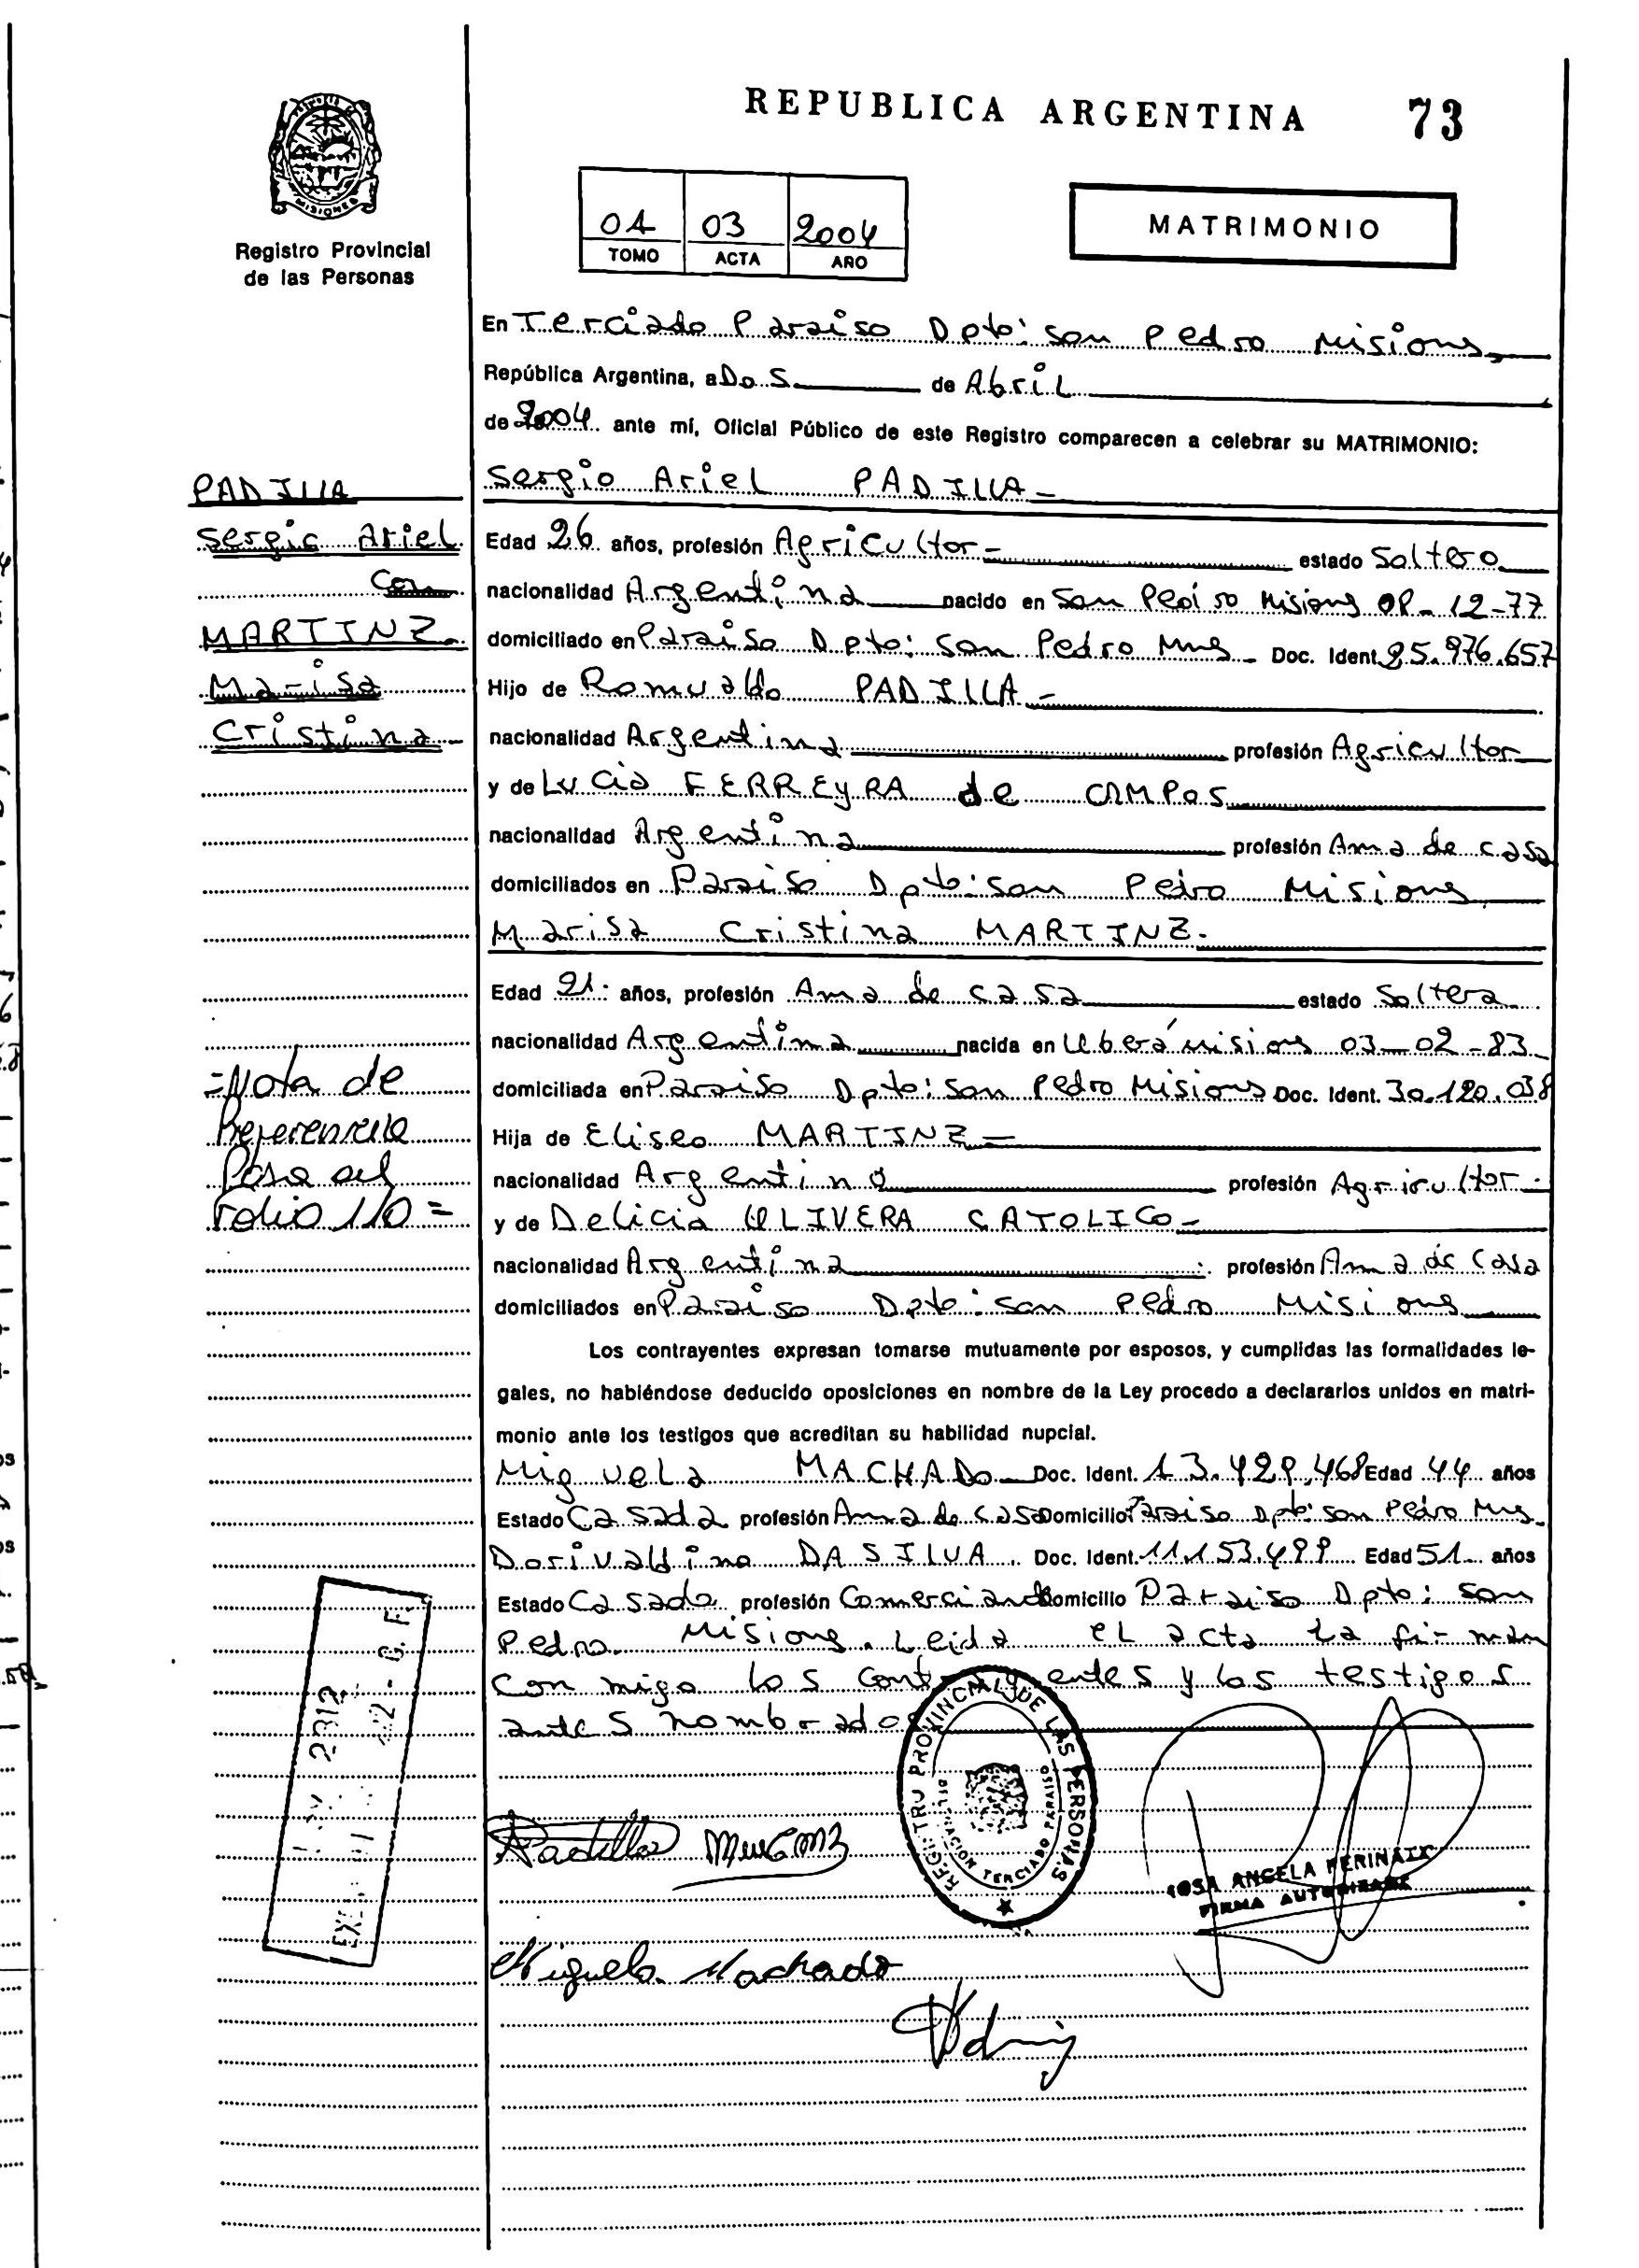 REPUBLICA ARGENTINA 73
MISIONES
Registro Provincial
de las Personas
01 03 2004
TOMO ACTA AÑO
MATRIMONIO
En Terciado Paraiso Dpto: san Pedro Misiones
República Argentina, a Dos de Abril
de 2004 ante mí, Oficial Público de este Registro comparecen a celebrar su MATRIMONIO:
Sergio Ariel PADILLA
Edad 26 años, profesión Agricultor estado Soltero
nacionalidad Argentina nacido en San Pedro Misiones 12-77
domiciliado en Paraiso Dpto: san Pedro Mns Doc. Ident. 25.976.657
Hijo de Romualdo PADILLA
nacionalidad Argentina profesión Agricultor
y de Lucia FERREYRA de CAMPOS
nacionalidad Argentina profesión Ama de casa
domiciliados en Paraiso Dpto: san Pedro Misiones
Marisa Cristina MARTINZ.
Edad 21 años, profesión Ama de casa estado Soltera
nacionalidad Argentina nacida en Uberá misiones 03-02-83
domiciliada en Paraiso Dpto: san Pedro Misiones Doc. Ident. 30.120.038
Hija de Eliseo MARTINZ
nacionalidad Argentina profesión Agricultor
y de Delicia OLIVERA CATOLICO
nacionalidad Argentina profesión Ama de Casa
domiciliados en Paraiso Dpto: san Pedro Misiones
Los contrayentes expresan tomarse mutuamente por esposos, y cumplidas las formalidades le-
gales, no habiéndose deducido oposiciones en nombre de la Ley procedo a declararlos unidos en matri-
monio ante los testigos que acreditan su habilidad nupcial.
Miguela MACHADO Doc. Ident. 13.429.468 Edad 44 años
Estado Casada profesión Ama de casa Domicilio Paraiso Dpto: san Pedro Mns
Dorivaldino DA SILVA Doc. Ident. 11.153.499 Edad 51 años
Estado Casado profesión Comerciante Domicilio Paraiso Dpto: san
Pedro Misiones. Leida el acta la firman
con migo los contrayentes y los testigos
antes nombrados
PADILLA
Sergio Ariel
Con
MARTINZ
Marisa
Cristina
=Nota de
Referencia
Pasa al
Folio 110=
REGISTRO PROVINCIAL DE LAS PERSONAS
DELEGACION TERCIADO PARAISO
Padilla
ROSA ANGELA PERINAZZ
FIRMA AUTORIZADA
Miguela Machado